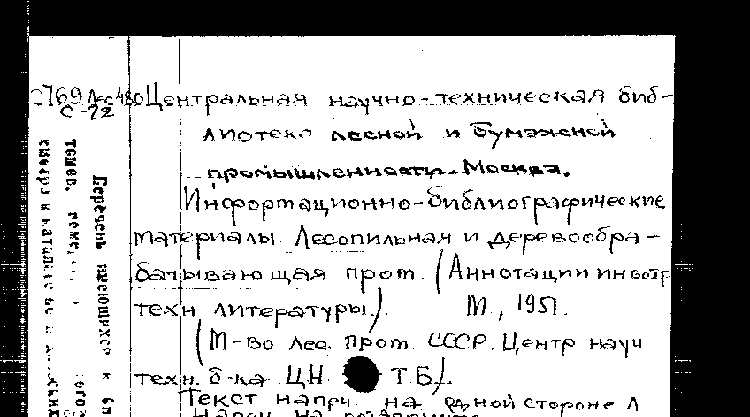 Центральная научно-техническая биб-
С-72
лиотека лесной и бумажной
промышленности. Москва.
Информационно-библиографические
материалы. Лесопильная и деревообра-
батывающая пром. (Аннотации иностр
техн. литературы). М., 1951.
(М-во лес. пром. СССР. Центр науч
техн. б-ка ЦН Т.Б).
Текст напеч. на одной стороне л
Перечень имеющихся к